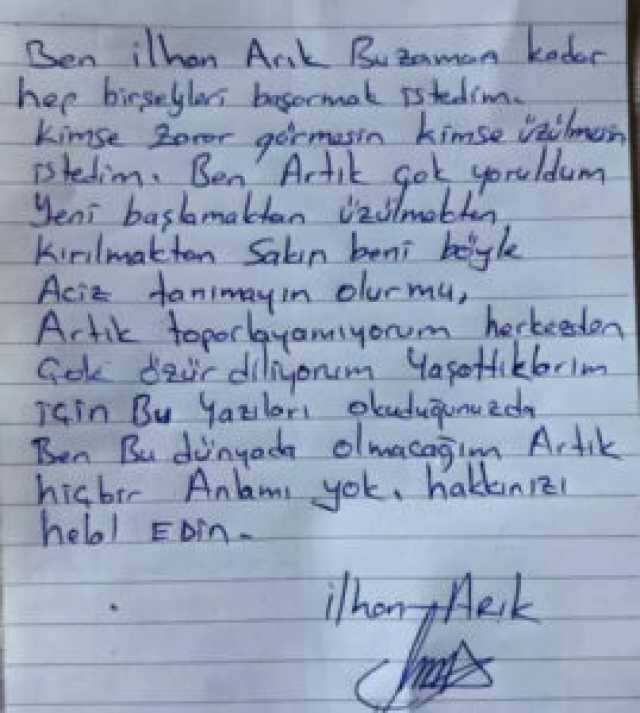 Ben ilhan Arık Bu zaman kadar
hep birşeyleri başarmak istedim.
Kimse zarar görmesin kimse üzülmesin
istedim. Ben Artık çok yoruldum
Yeni başlamaktan üzülmekten
Kırılmaktan Sakın beni böyle
Aciz tanımayın olurmu,
Artık toparlayamıyorum herkezden
Çok özür diliyorum Yaşattıklarım
için Bu Yazıları okuduğunuzda
Ben Bu dünyada olmacağım Artık
hiçbir Anlamı yok. hakkınızı
helal EDin.
ilhan Arık